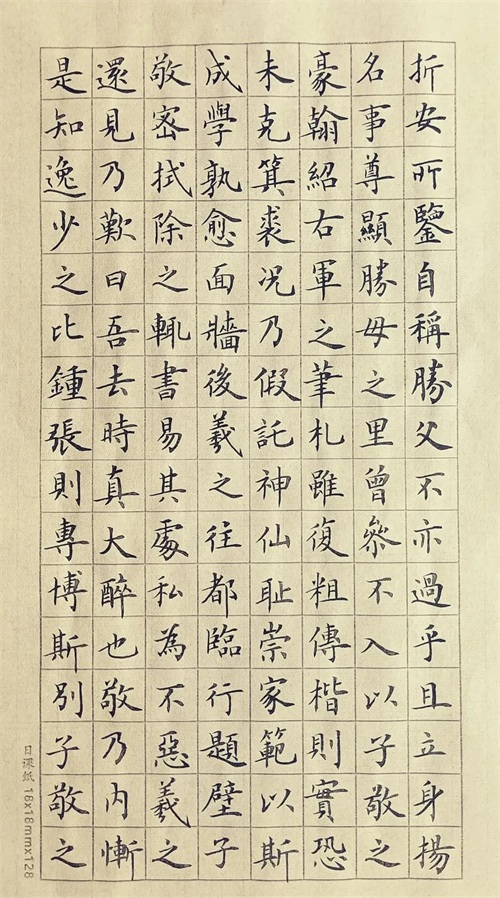 折安所鑒自稱勝父不亦過乎且立身揚
名事尊顯勝母之里曾參不入以子敬之
豪翰紹右軍之筆札雖復粗傳楷則實恐
未克箕裘況乃假託神仙耻崇家範以斯
成學孰愈面牆後羲之往都臨行題壁子
敬密拭除之輒書易其處私為不惡羲之
還見乃歎曰吾去時真大醉也敬乃內慚
是知逸少之比鍾張則專博斯別子敬之
日課紙 18x18mmx128